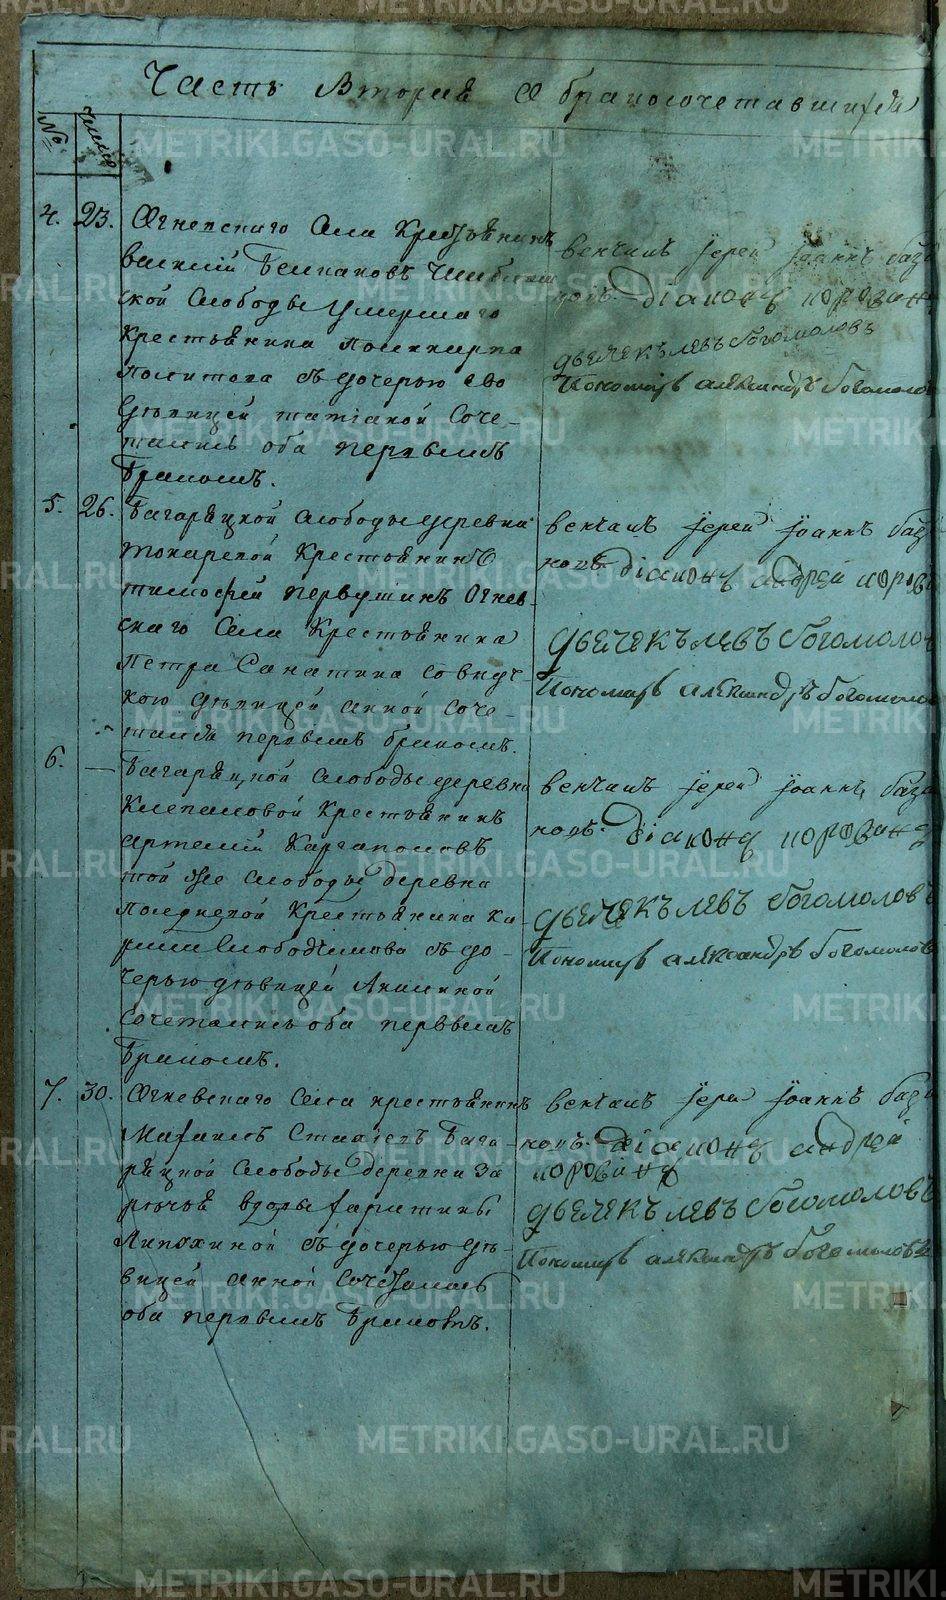 Часть Вторая О бракосочетавшихся
№ Число
4. 23. Огневскаго Села Крестьянинъ
василій Чибл
ской Слободы Умершаго
Крестьянина Поликарпа
съ дочерью Ево
девицей татіаной Соче-
тались оба первымъ
бракомъ.
венчалъ Іерей Іоаннъ
діаконъ
дьячекъ левъ богомоловъ
Пономарь александръ богомолов
5. 26. багаряцкой слободы деревни
токаревой Крестьянинъ
тимофей первушинъ Огнев-
скаго Села Крестьянина
Петра Санатина со внуч-
кою девицей анной соче-
тался первымъ бракомъ.
венчалъ Іерей Іоаннъ
діаконъ андрей
дьячекъ левъ богомолов
Пономарь александръ богомолов
6. — багаряцкой слободы деревни
Клепаловой Крестьянинъ
артемій Каргаполовъ
той же слободы деревни
Крестьянина Ка
съ до-
черью девицей Акилиной
сочетались оба первымъ
бракомъ.
венчалъ Іерей Іоаннъ
діаконъ
дьячекъ левъ богомоловъ
Пономарь александръ богомолов
7. 30. Огневскаго Села крестьянинъ
Михаилъ бага-
ряцкой слободы деревни За
вдовы харитины
Липухиной съ дочерью де-
вицей анной Сочетались
оба первымъ бракомъ.
венчалъ Іерей Іоаннъ
діаконъ андрей
дьячекъ левъ богомоловъ
Пономарь александръ богомоловъ
METRIKI.GASO-URAL.RU